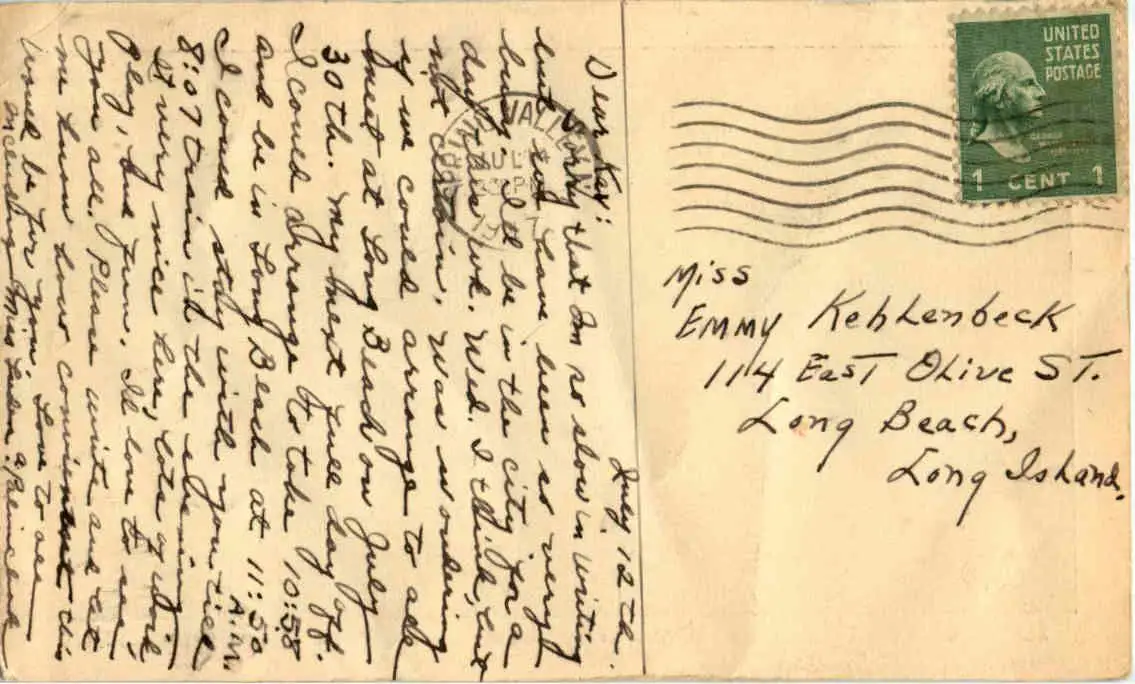 July 12th.
Dear Kay:
Sorry that Im so slow in writing
but have been so very
busy. Ill be in the city for a
day this wk. Wed. I think, but
not certain. Was wondering
if we could arrange to all
meet at Long Beach on July
30th. My next full day off.
I could arrange to take 10:58
and be in Long Beach at 11:50 A.M.
I could stay with you till
8:07 train in the evening
It very nice here, lots of work,
Play, and fun. I'll love to see
you all. Please write and let
me know how convinent this
would be for you. Love to all
including Miss Luden
UNITED
STATES
POSTAGE
1 CENT 1
VALLEY
JUL
Miss
Emmy Kehlenbeck
114 East Olive St.
Long Beach,
Long Island.